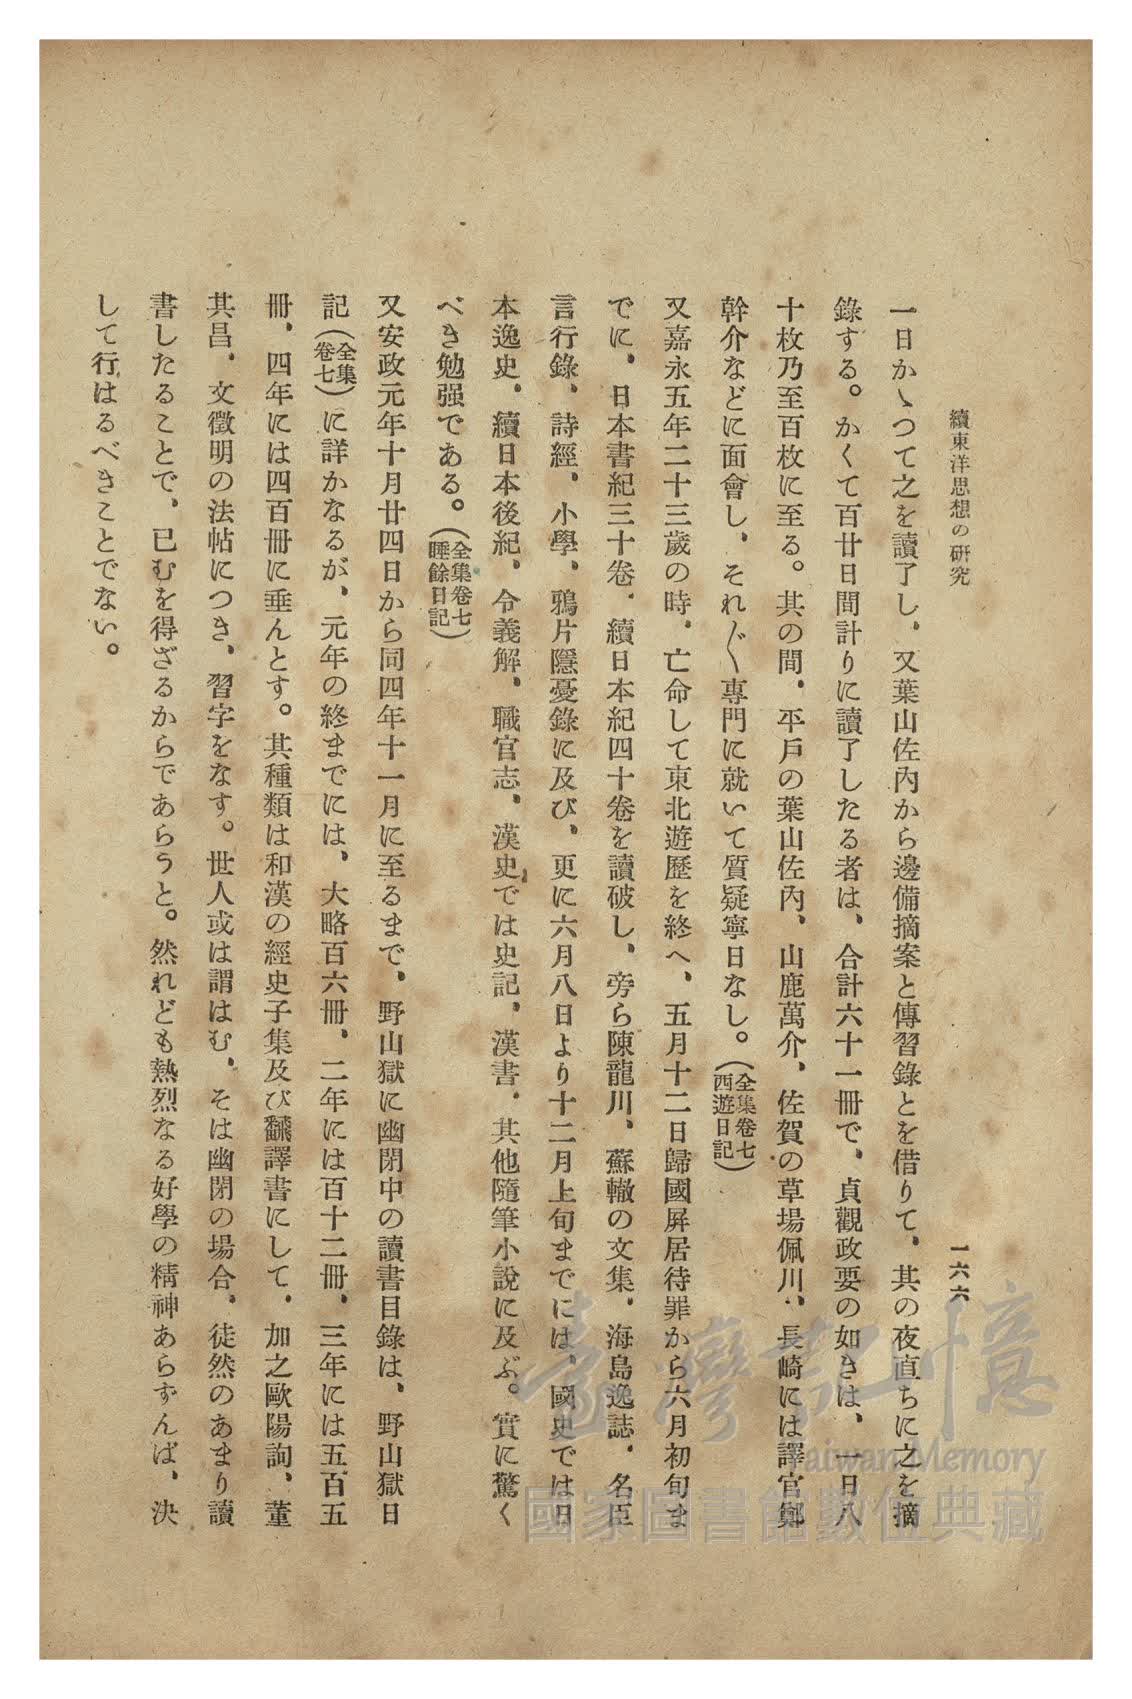 續東洋思想の研究
一六六
一日かゝつて之を讀了し、又葉山佐内から邊備摘案と傳習錄とを借りて、其の夜直ちに之を摘
錄する。かくて百廿日間計りに讀了したる者は、合計六十一冊で、貞觀政要の如きは、一日八
十枚乃至百枚に至る。其の間、平戶の葉山佐内、山鹿萬介、佐賀の草場佩川、長崎には譯官鄭
幹介などに面會し、それ〲專門に就いて質疑寧日なし。(全集卷七西遊日記)
又嘉永五年二十三歲の時、亡命して東北遊歷を終へ、五月十二日歸國屏居待罪から六月初旬ま
でに、日本書紀三十卷、續日本紀四十卷を讀破し、旁ら陳龍川、蘇轍の文集、海島逸誌、名臣
言行錄、詩經、小學、鴉片隱憂錄に及び、更に六月八日より十二月上旬までには、國史では日
本逸史、續日本後紀、令義解、職官志、漢史では史記、漢書、其他隨筆小說に及ぶ。實に驚く
べき勉强である。(全集卷七睡餘日記)
又安政元年十月廿四日から同四年十一月に至るまで、野山獄に幽閉中の讀書目錄は、野山獄日
記(全集卷七)に詳かなるが、元年の終までには、大略百六冊、二年には百十二冊、三年には五百五
冊、四年には四百冊に垂んとす。其種類は和漢の經史子集及び飜譯書にして、加之歐陽詢、董
其昌、文徵明の法帖につき、習字をなす。世人或は謂はむ、そは幽閉の場合、徒然のあまり讀
書したることで、已むを得ざるからであらうと。然れども熱烈なる好學の精神あらずんば、決
して行はるべきことでない。
臺灣記憶
Taiwan Memory
國家圖書館數位典藏